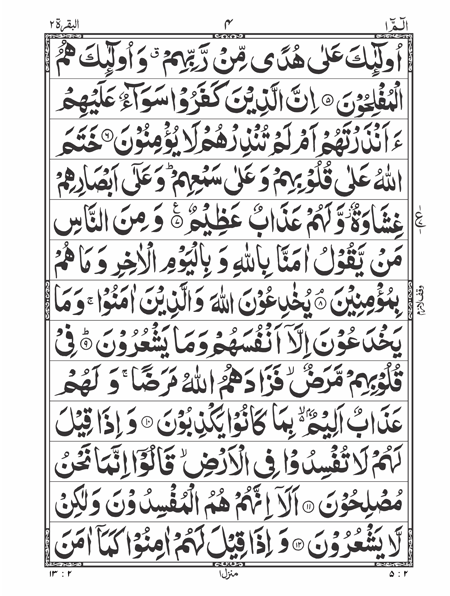 الٓمّٓ ١ ٤ البقرة ٢
اُولٰٓئِكَ عَلٰى هُدًى مِّنْ رَّبِّهِمْ ۙ وَ اُولٰٓئِكَ هُمُ
الْمُفْلِحُوْنَ ﴿۵﴾ اِنَّ الَّذِيْنَ كَفَرُوْا سَوَآءٌ عَلَيْهِمْ
ءَاَنْذَرْتَهُمْ اَمْ لَمْ تُنْذِرْهُمْ لَا يُؤْمِنُوْنَ ﴿۶﴾ خَتَمَ
اللّٰهُ عَلٰى قُلُوْبِهِمْ وَ عَلٰى سَمْعِهِمْ ؕ وَ عَلٰٓى اَبْصَارِهِمْ
غِشَاوَةٌ ؗ وَّ لَهُمْ عَذَابٌ عَظِيْمٌ ﴿۷﴾ ع وَ مِنَ النَّاسِ
مَنْ يَّقُوْلُ اٰمَنَّا بِاللّٰهِ وَ بِالْيَوْمِ الْاٰخِرِ وَ مَا هُمْ
بِمُؤْمِنِيْنَ ﴿۸﴾ يُخٰدِعُوْنَ اللّٰهَ وَ الَّذِيْنَ اٰمَنُوْا ۚ وَ مَا
يَخْدَعُوْنَ اِلَّاۤ اَنْفُسَهُمْ وَ مَا يَشْعُرُوْنَ ﴿۹﴾ؕ فِيْ
قُلُوْبِهِمْ مَّرَضٌ ۙ فَزَادَهُمُ اللّٰهُ مَرَضًا ۚ وَ لَهُمْ
عَذَابٌ اَلِيْمٌۢ ۙ بِمَا كَانُوْا يَكْذِبُوْنَ ﴿۱۰﴾ وَ اِذَا قِيْلَ
لَهُمْ لَا تُفْسِدُوْا فِي الْاَرْضِ ۙ قَالُوْۤا اِنَّمَا نَحْنُ
مُصْلِحُوْنَ ﴿۱۱﴾ اَلَاۤ اِنَّهُمْ هُمُ الْمُفْسِدُوْنَ وَ لٰكِنْ
لَّا يَشْعُرُوْنَ ﴿۱۲﴾ وَ اِذَا قِيْلَ لَهُمْ اٰمِنُوْا كَمَاۤ اٰمَنَ
۵ : ۲ منزل ۱ ۱۳ : ۲